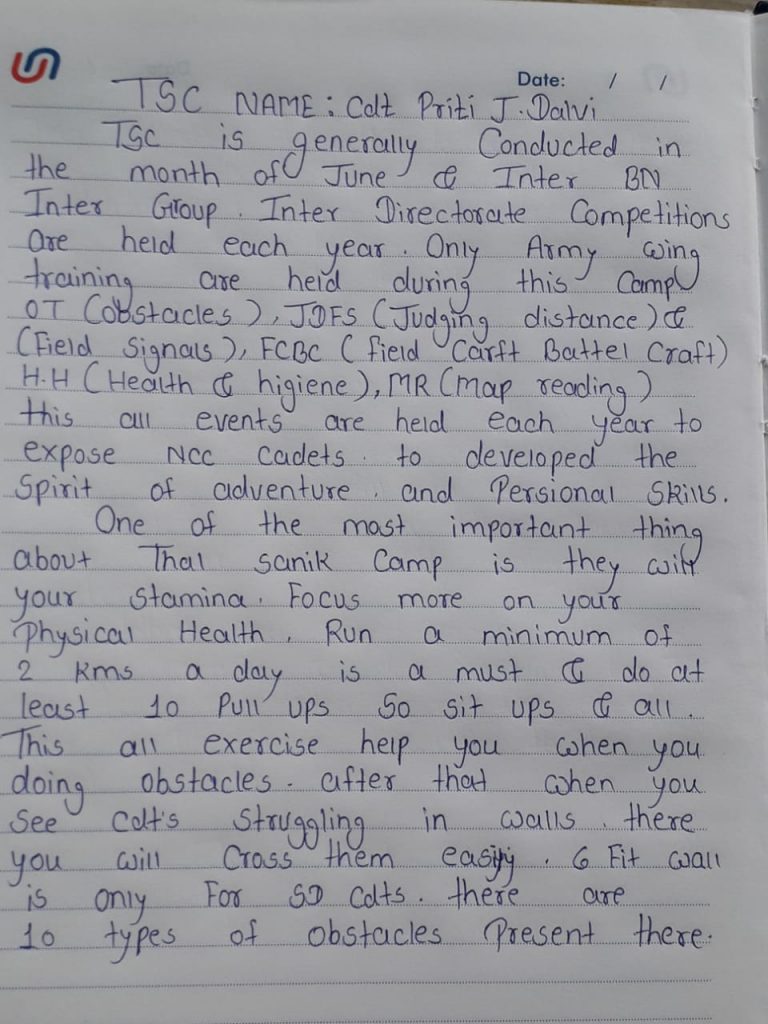 Date: / /
TSC NAME: Cdt Priti J. Dalvi
TSC is generally Conducted in
the month of June & Inter BN
Inter Group. Inter Directorate Competitions
are held each year. Only Army wing
training are held during this Camp
OT (obstacles), JDFS (Judging distance) &
(Field Signals), FCBC (field Carft Battel Craft)
H.H (Health & higiene), MR (Map reading)
this all events are held each year to
expose NCC Cadets. to developed the
Spirit of adventure. and Persional Skills.
One of the most important thing
about Thal sanik Camp is they will
your stamina. Focus more on your
Physical Health. Run a minimum of
2 kms a day is a must & do at
least 10 Pull ups 50 sit ups & all.
This all exercise help you when you
doing obstacles. after that when you
see Cdt's struggling in walls. there
you will Cross them easily. 6 Fit wall
is only For SD Cdts. there are
10 types of obstacles Present there.